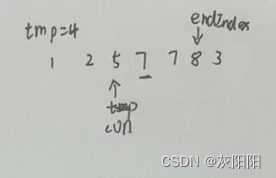 tmp=4
endindex
↓
1 2 5 7 7 8 3
↑
tmp
cur
CSDN @灰阳阳